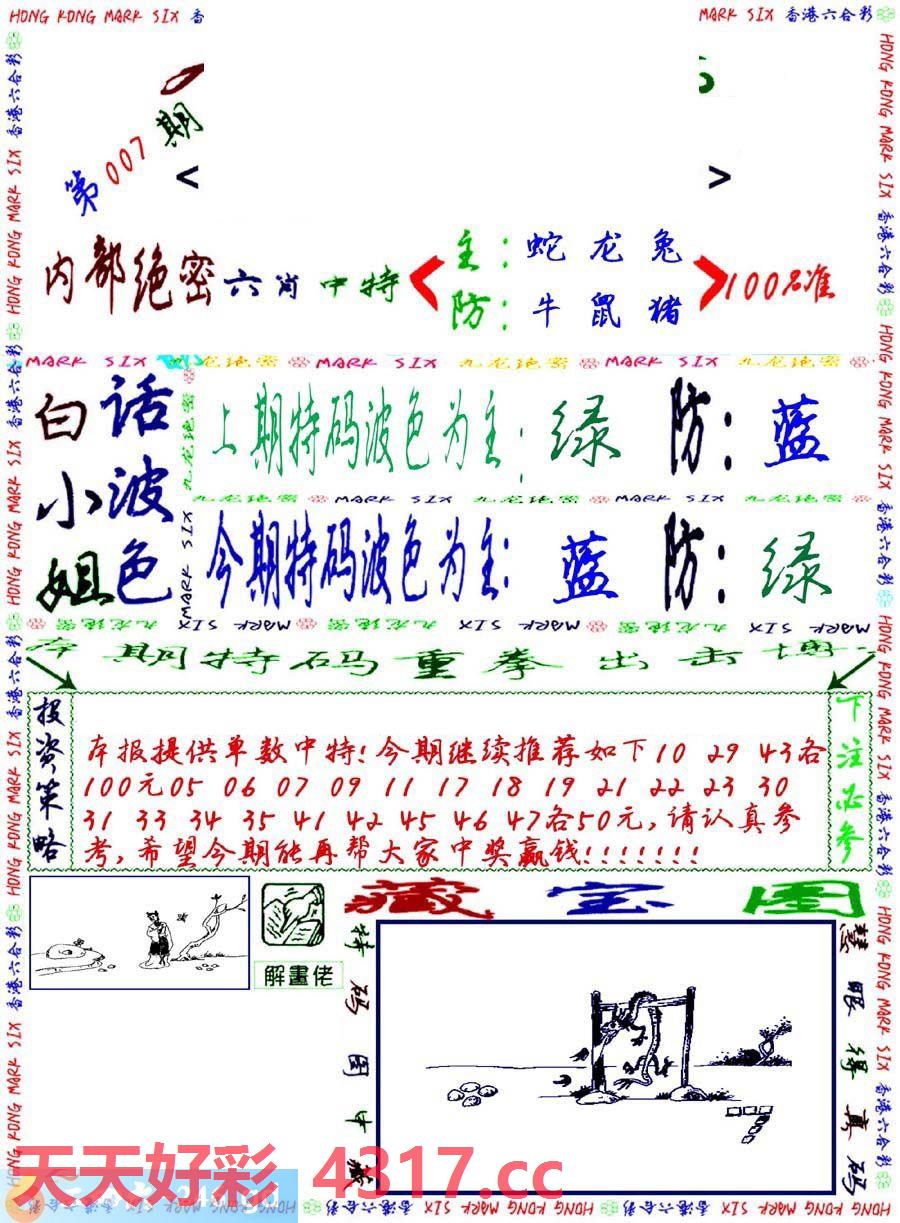 HONG KONG MARK SIX 香
MARK SIX 香港六合彩
第007期
< >
内部绝密六肖中特
主:蛇龙兔
防:牛鼠猪
100名准
MARK SIX 九龙绝密 MARK SIX 九龙绝密 MARK SIX 九龙绝密
白话
小波
姐色
上期特码波色为主:绿 防:蓝
九龙绝密 MARK SIX 九龙绝密 MARK SIX 九龙绝密
今期特码波色为主:蓝 防:绿
MARK SIX 九龙绝密 MARK SIX 九龙绝密 MARK SIX 九龙绝密 MARK SIX
期特码重拳出击
投资策略
本报提供单数中特!今期继续推荐如下10 29 43各
100元05 06 07 09 11 17 18 19 21 22 23 30
31 33 34 35 41 42 45 46 47各50元,请认真参
考,希望今期能再帮大家中奖赢钱!!!!!!!
下注必参
藏宝图
解畫佬
特码图中藏
慧眼得真码
天天好彩 4317.cc
HONG KONG MARK SIX 香港六合彩